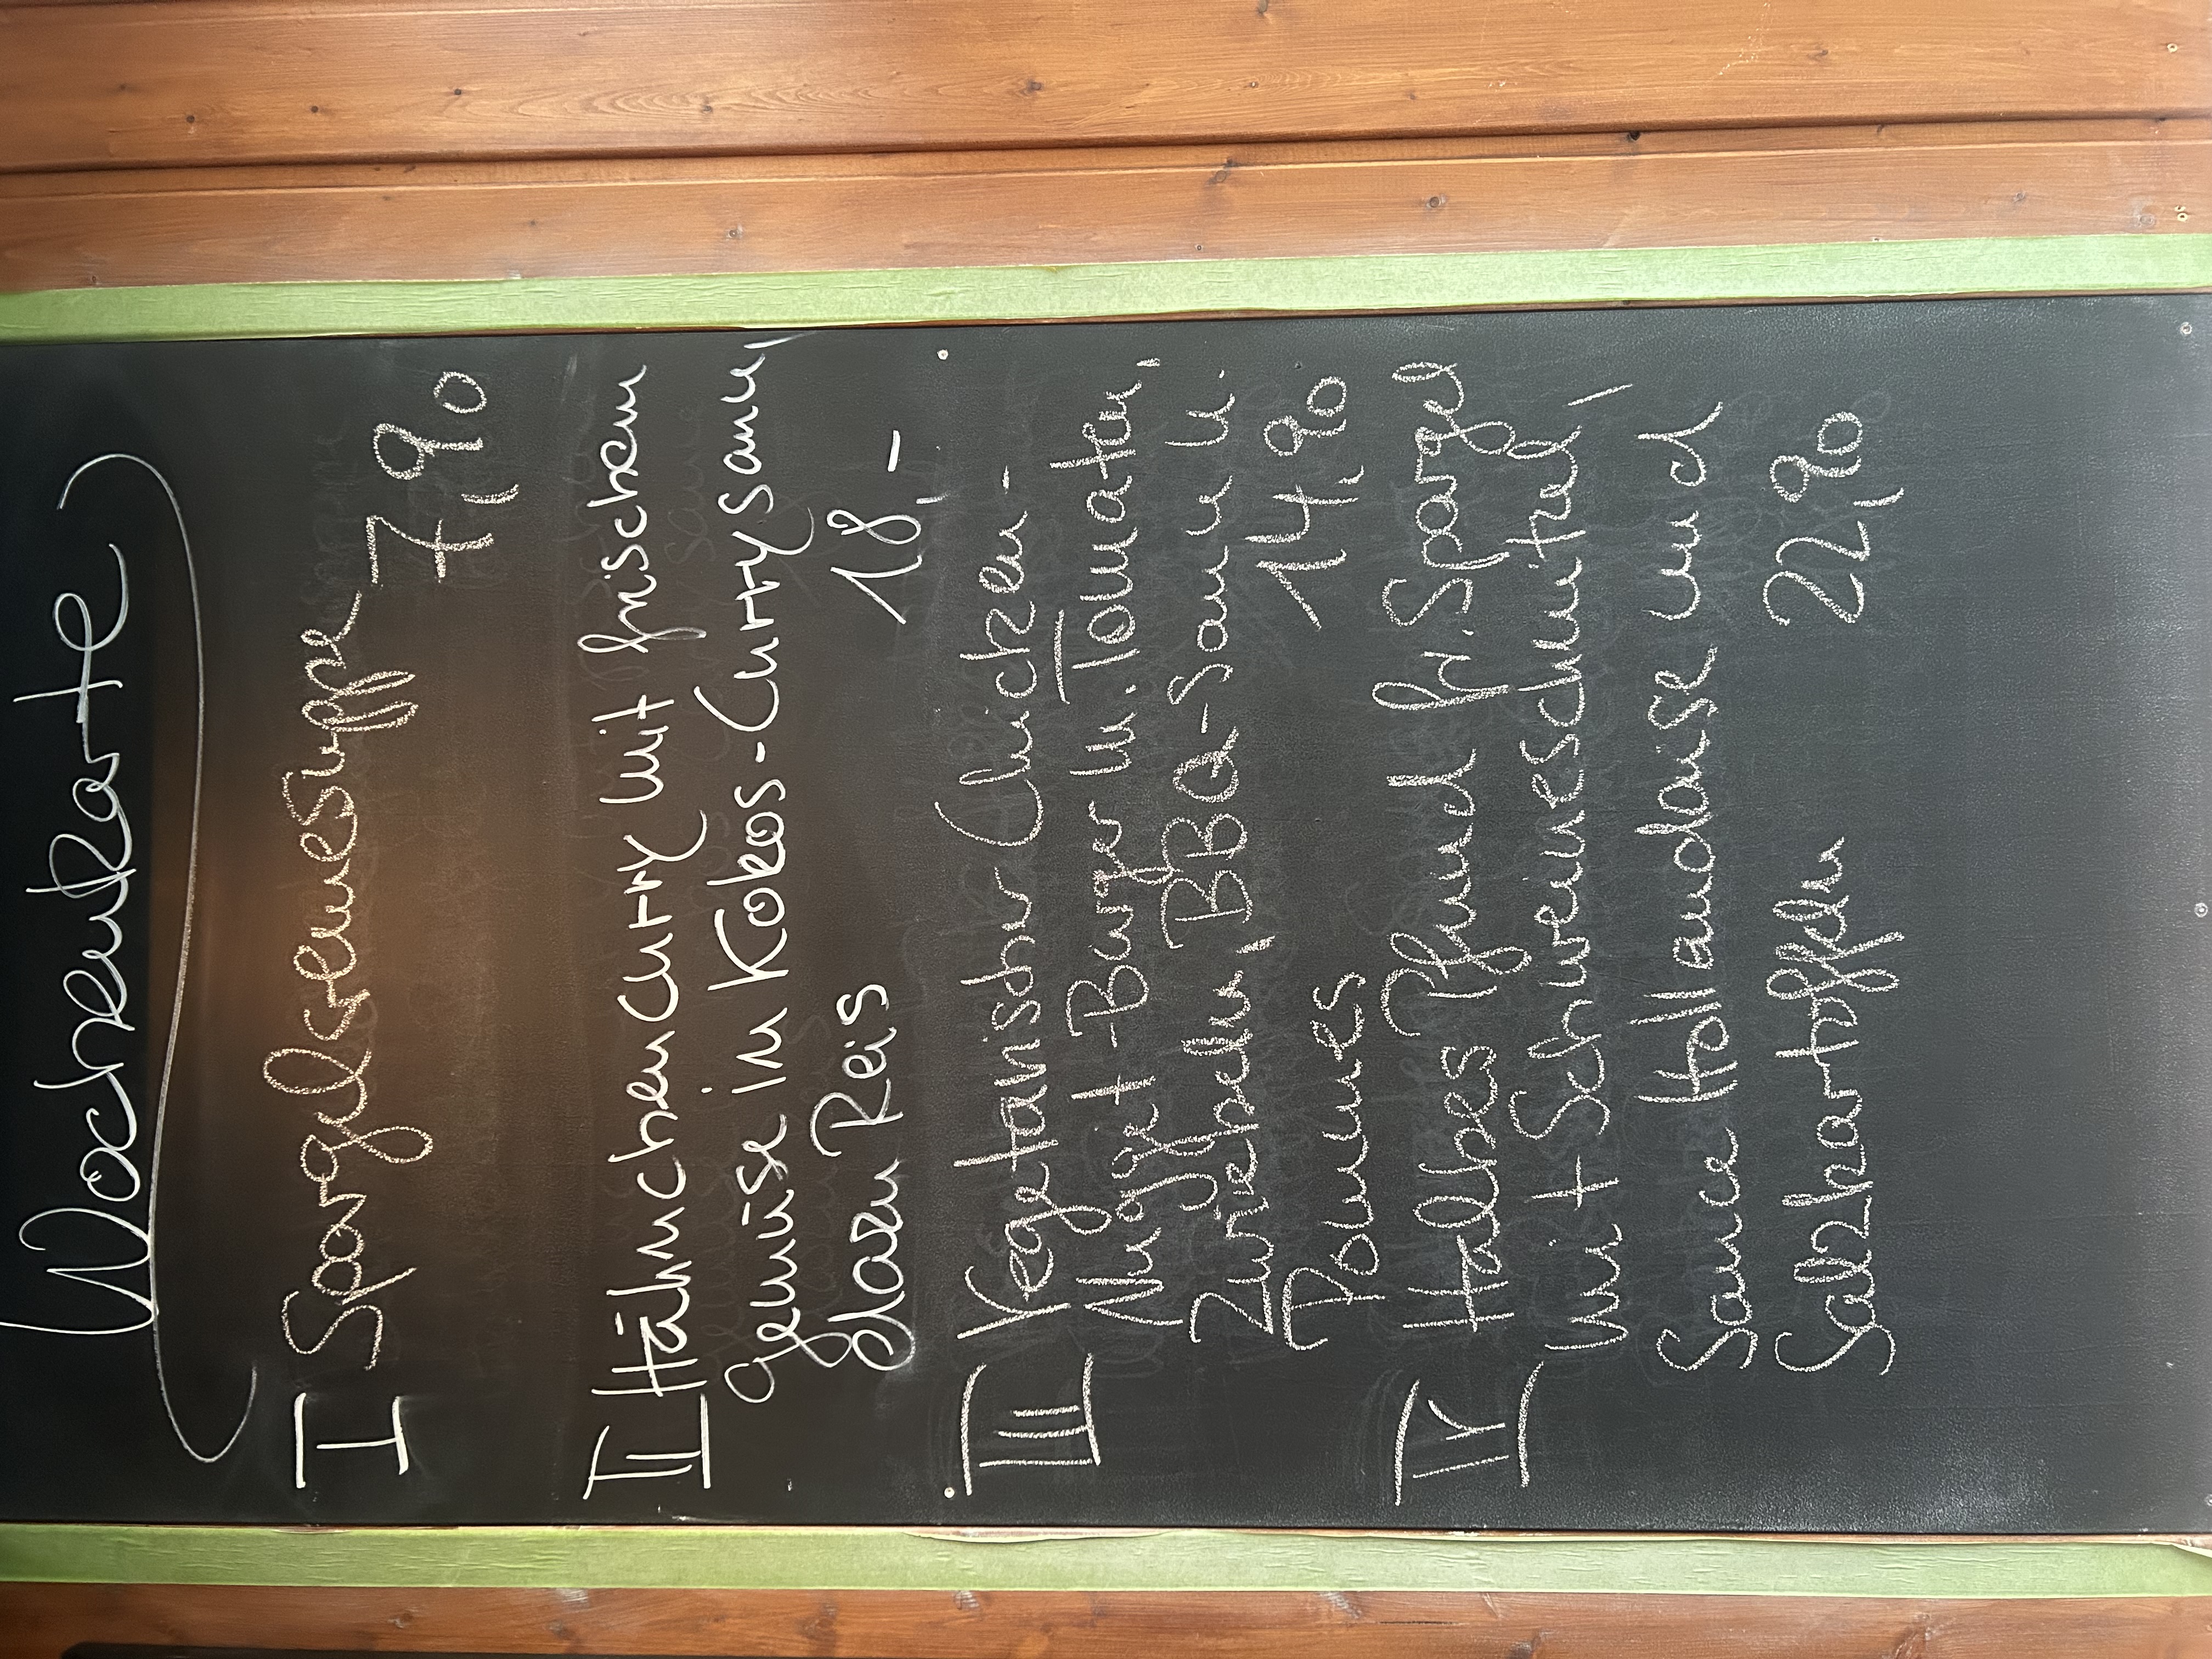 Wochenkarte
I Spargelcremesuppe 7,90
II Hähnchencurry mit frischem
Gemüse in Kokos-Currysauce,
dazu Reis 18,-
III Vegetarischer Chicken-
Nugget-Burger m. Tomaten,
Zwiebeln, BBQ-Sauce u.
Pommes 14,90
IV Halbes Pfund fr. Spargel
mit Schweineschnitzel,
Sauce Hollandaise und
Salzkartoffeln 22,90